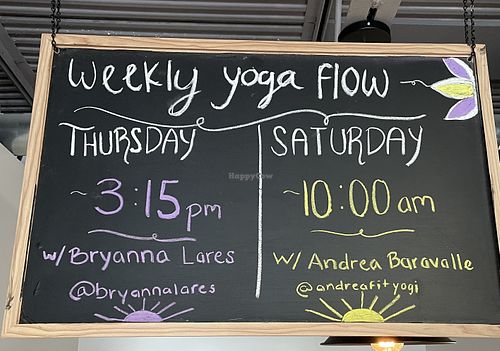 Weekly yoga flow
THURSDAY
~ 3:15 pm
w/ Bryanna Lares
@bryannalares
SATURDAY
~ 10:00 am
w/ Andrea Baravalle
@andreafityogi
HappyCow